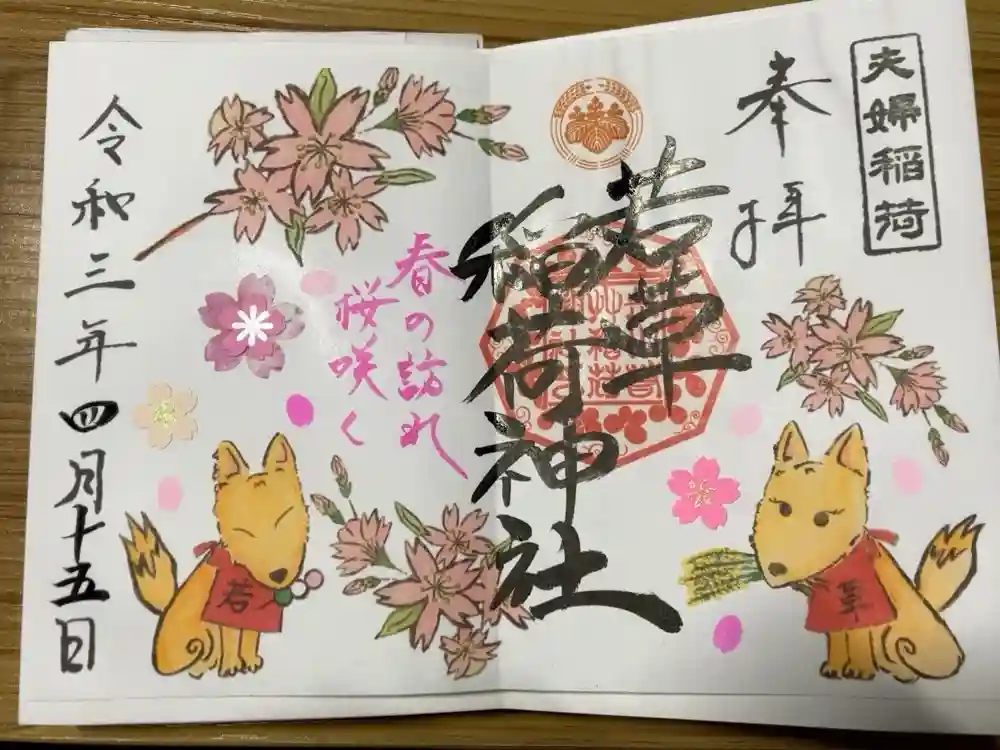 夫婦稲荷
奉拝
若草
稲荷神社
春の訪れ
桜咲く
令和三年四月十五日
若
草